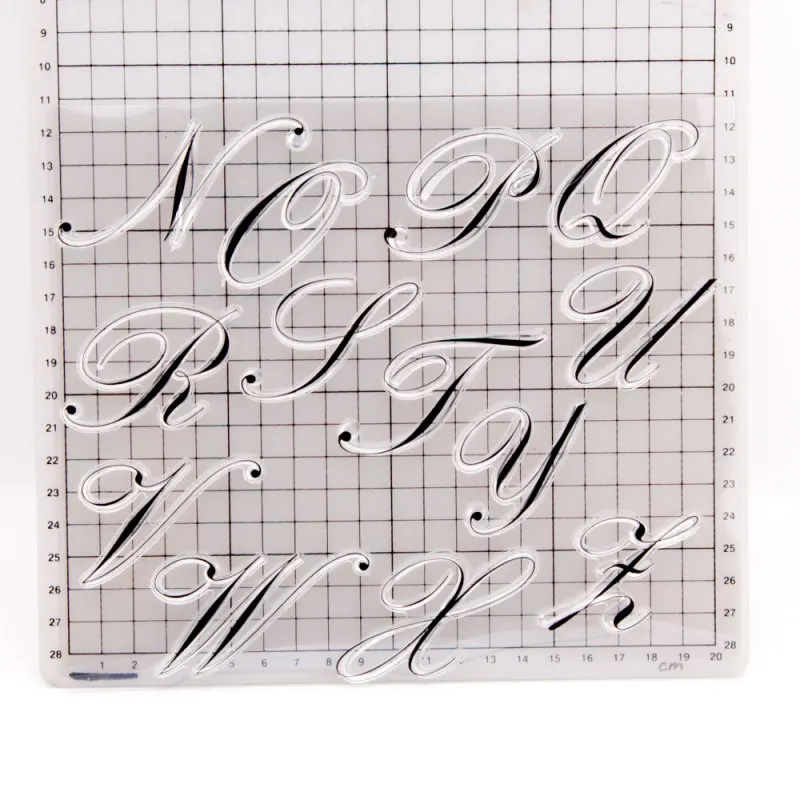 N O P Q
R S T U
V W X Y Z
8 9
10 10
11 11
12 12
13 13
14 14
15 15
16 16
17 17
18 18
19 19
20 20
21 21
22 22
23 23
24 24
25 25
26 26
27 27
28 28
1 2 5 6 7 8 9 11 13 14 15 16 17 18 19 20
cm